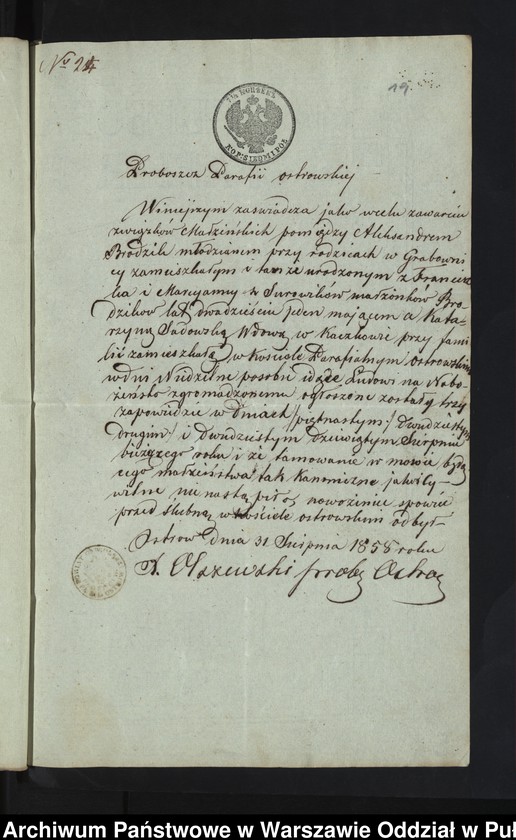 Nr 24
19.
7½ KOPIEKЪ
KOP: SIEDM I PÓŁ
Proboszcz Parafii Ostrowskiej
Niniejszym zaświadcza jako w celu zawarcia
związków Małżeńskich pomiędzy Aleksandrem
Brodzik młodzianem przy rodzicach w Grabowni
cy zamieszkałym a tamże urodzonym z Francisz
ka i Maryanny z Surowików małżonków Bro
dzików lat dwadzieścia jeden mającem a Kata
rzyną Sadowską Wdową w Kaczkowie przy fami
lii zamieszkałą w Kościele Parafialnym Ostrowskim
w dni Niedzielne posobie idące Ludowi na Nabo
żeństwo zgromadzonemu ogłoszone zostały trzy
zapowiedzie w Dniach piętnastym/ Dwudziestym
drugim/ i Dwudziestym dziewiątym Sierpnia
bieżącego roku i że tamowanie w mowie będą
cego małżeństwa tak Kanoniczne jako i Cy-
wilne nie nastąpiło, nowożenie spowie
przed ślubną w kościele ostrowskim odbył
Ostrow dnia 31 Sierpnia 1858 roku
X. Olszewski prob Ostro
Archiwum Państwowe w Warszawie Oddział w Puł